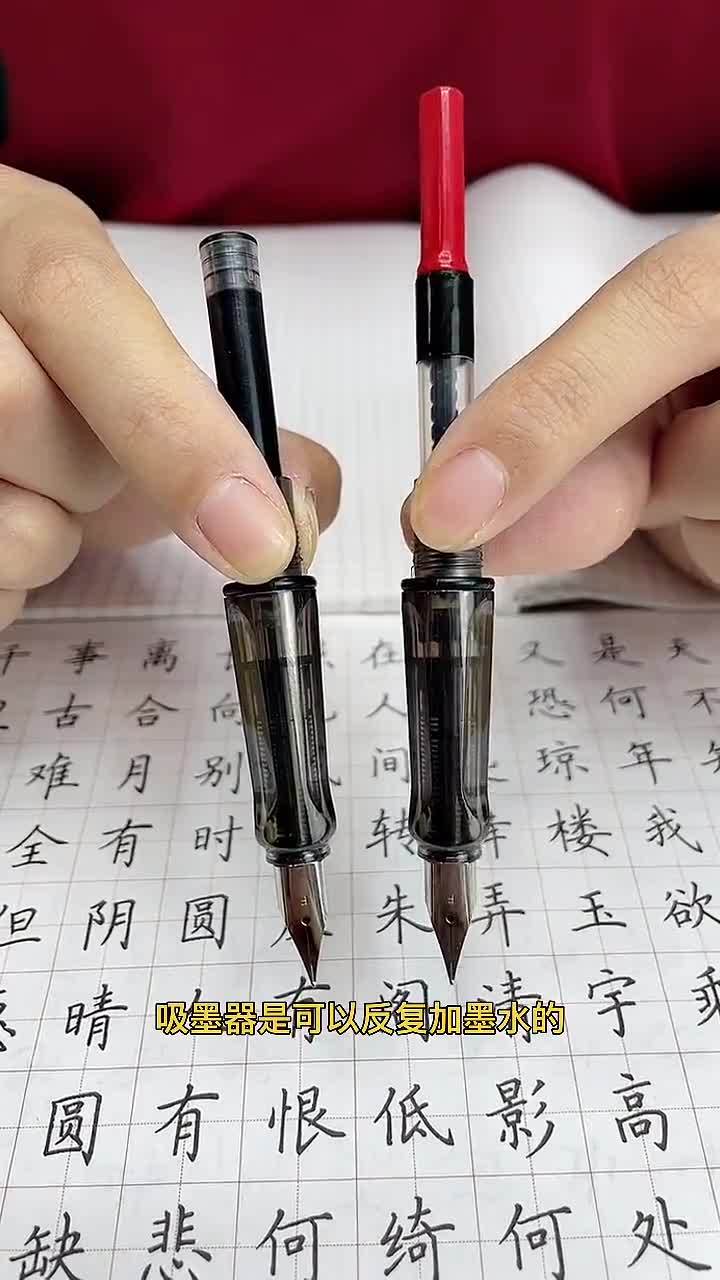 天不
是何年我欲乘
又恐琼楼玉宇高处
弄清影何
在人间转朱阁低绮
有恨何
向别时圆人有悲
离合月有阴晴圆缺
事古难全但
千
吸墨器是可以反复加墨水的